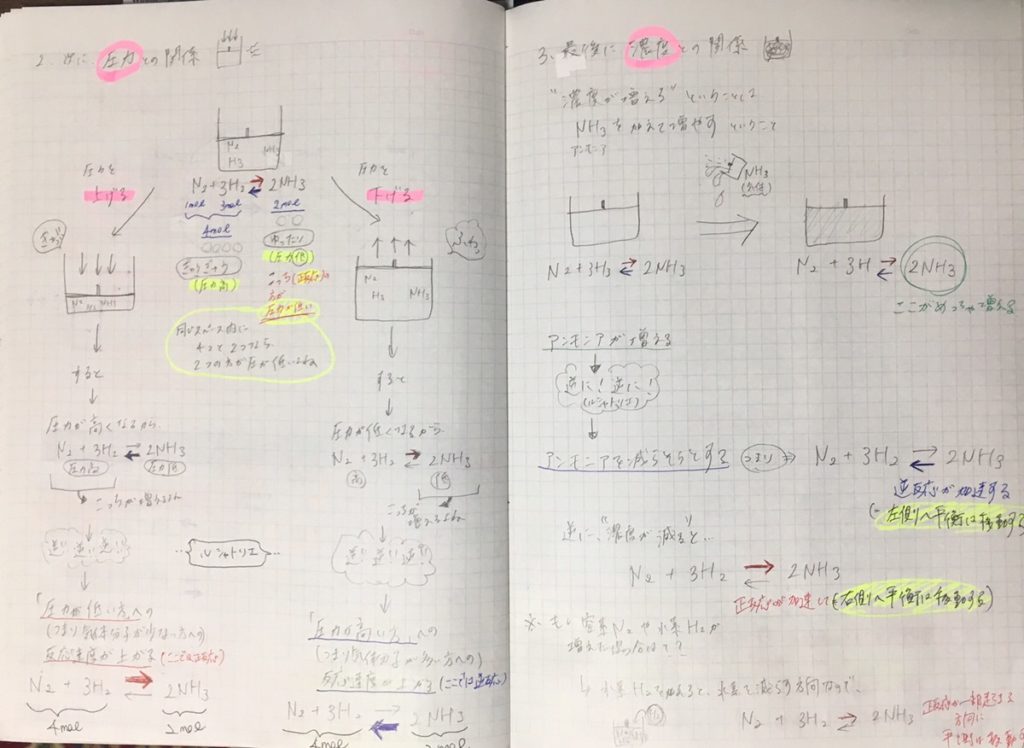 2. 次に、圧力との関係
N2
H3
NH3
圧力を
上げる
N2+3H2 ⇄ 2NH3
1mol 3mol 2mol
4mol
ぎゅうぎゅう
(圧力高)
ゆったり
(圧力低)
こっち(正反応)の
方が
圧力が低い
圧力を
下げる
N2
H3
NH3
同じスペース内に
4つと2つなら
2つの方が圧が低いよね
すると
圧力が高くなるから
N2 + 3H2 ⇄ 2NH3
圧力高 圧力低
こっちが増えるよね
逆に逆に逆に!
「圧力が低い方」への
(つまり気体分子が少ない方への)
反応速度が上がる(ここでは正反応)
N2 + 3H2 ⇄ 2NH3
4mol 2mol
… ルシャトリエ …
すると
圧力が低くなるから
N2 + 3H2 ⇄ 2NH3
高 低
こっちが
増えるよね
逆に逆に逆に!
「圧力が高い方」への
(つまり気体分子が多い方への)
反応速度が上がる(ここでは逆反応)
N2 + 3H2 ⇄ 2NH3
4mol 2mol
3、最後に濃度との関係
"濃度が増える"ということは
NH3を加えて増やすということ
アンモニア
NH3
N2+3H2 ⇄ 2NH3
N2 + 3H ⇄ 2NH3
ここがめっちゃ増える
アンモニアが増える
逆に!逆に!
(ルシャトリエ)
アンモニアを減らそうとする つまり → N2 + 3H2 ⇄ 2NH3
逆反応が加速する
(=左側へ平衡は移動する
逆に、"濃度が減る"と…
N2 + 3H2 ⇄ 2NH3
正反応が加速して(右側へ平衡は移動する)
※もし窒素N2や水素H2が
増えた場合は??
↳ 水素H2を加えると、水素を減らす方向なので、
H2
N2 + 3H2 ⇄ 2NH3
方向に